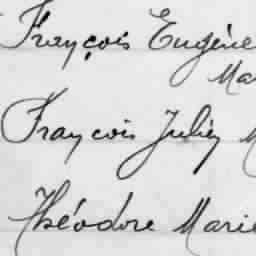 François Eugène
Mar
François Julien M
Théodore Marie